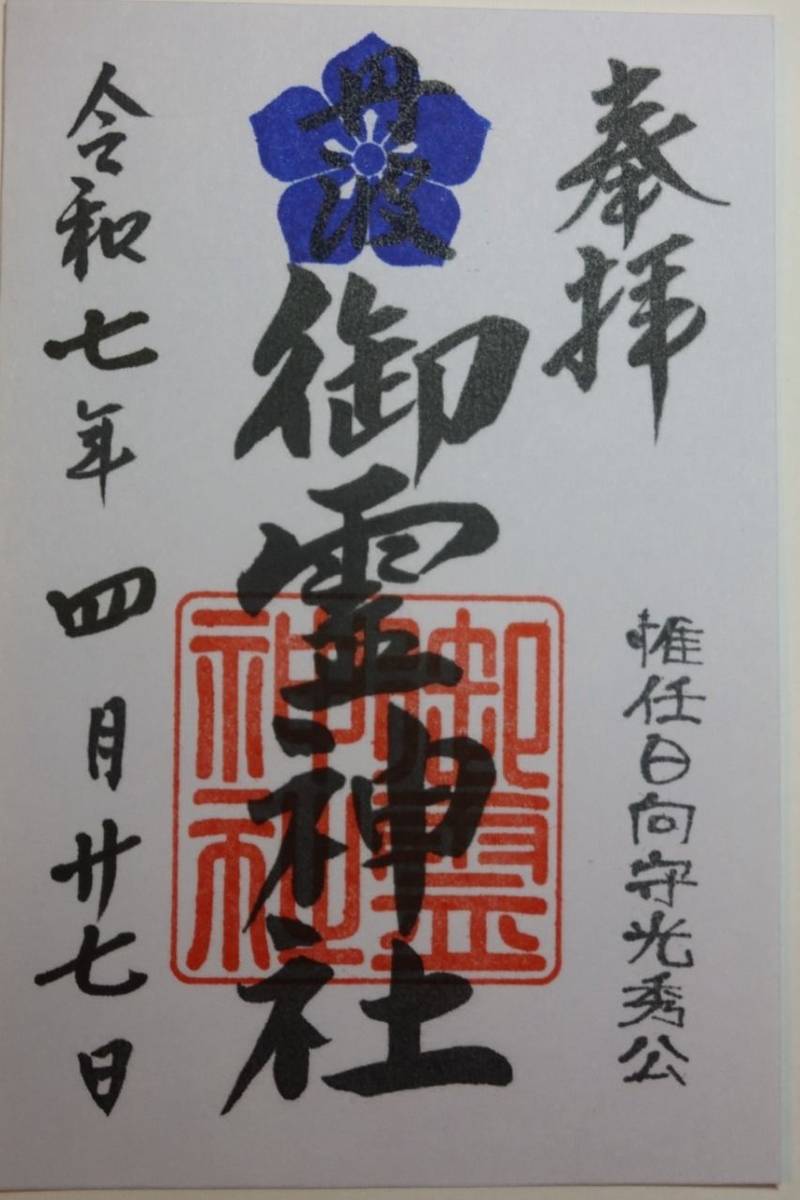 奉拝
惟任日向守光秀公
丹波
御霊神社
御靈
神社
令和七年四月廿七日